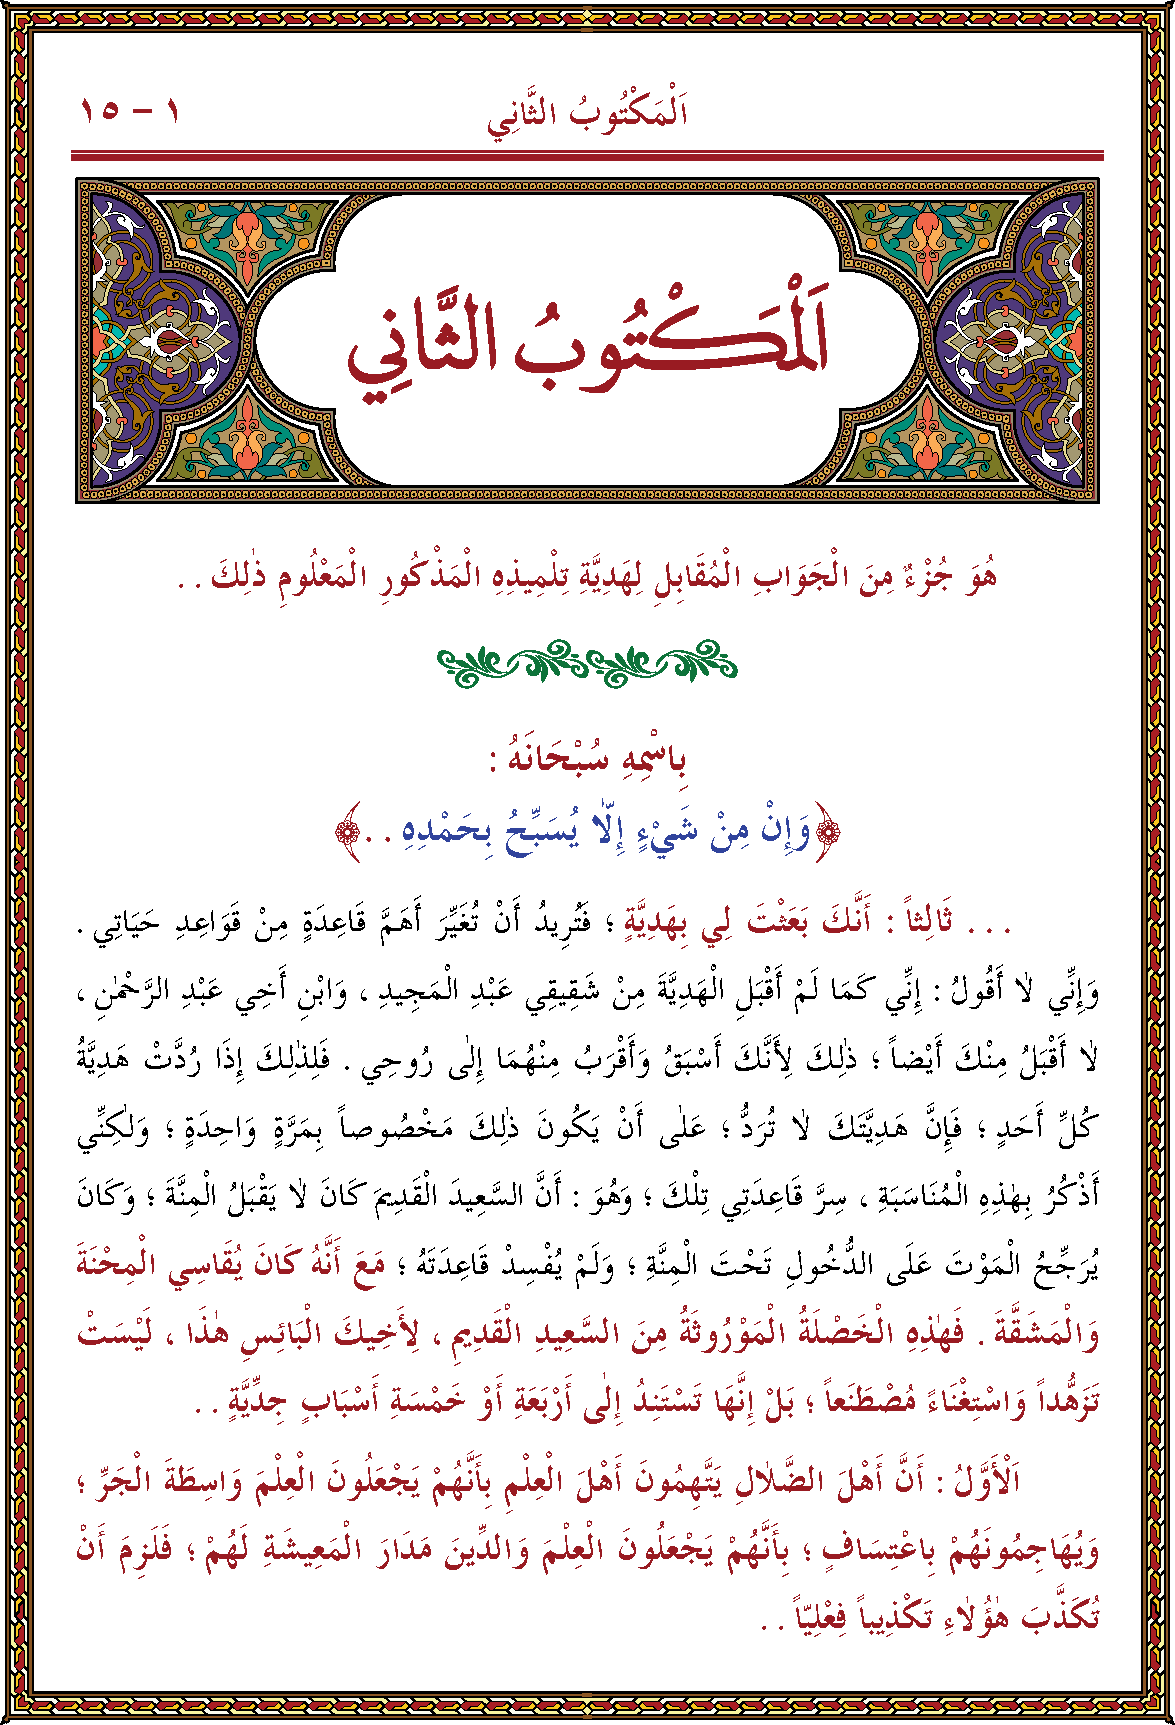 اَلْمَكْتُوبُ الثَّانِي
١ - ١٥
اَلْمَكْتُوبُ الثَّانِي
هُوَ جُزْءٌ مِنَ الْجَوَابِ الْمُقَابِلِ لِهَدِيَّةِ تِلْمِيذِهِ الْمَذْكُورِ الْمَعْلُومِ ذٰلِكَ . .
بِاسْمِهِ سُبْحَانَهُ :
﴿وَإِنْ مِنْ شَيْءٍ إِلَّا يُسَبِّحُ بِحَمْدِهِ . .﴾
. . . ثَالِثاً : أَنَّكَ بَعَثْتَ لِي بِهَدِيَّةٍ ؛ فَتُرِيدُ أَنْ تُغَيِّرَ أَهَمَّ قَاعِدَةٍ مِنْ قَوَاعِدِ حَيَاتِي .
وَإِنِّي لَا أَقُولُ : إِنِّي كَمَا لَمْ أَقْبَلِ الْهَدِيَّةَ مِنْ شَقِيقِي عَبْدِ الْمَجِيدِ ، وَابْنِ أَخِي عَبْدِ الرَّحْمٰنِ ،
لَا أَقْبَلُ مِنْكَ أَيْضاً ؛ ذٰلِكَ لِأَنَّكَ أَسْبَقُ وَأَقْرَبُ مِنْهُمَا إِلٰى رُوحِي . فَلِذٰلِكَ إِذَا رُدَّتْ هَدِيَّةُ
كُلِّ أَحَدٍ ؛ فَإِنَّ هَدِيَّتَكَ لَا تُرَدُّ ؛ عَلٰى أَنْ يَكُونَ ذٰلِكَ مَخْصُوصاً بِمَرَّةٍ وَاحِدَةٍ ؛ وَلٰكِنِّي
أَذْكُرُ بِهٰذِهِ الْمُنَاسَبَةِ ، سِرَّ قَاعِدَتِي تِلْكَ ؛ وَهُوَ : أَنَّ السَّعِيدَ الْقَدِيمَ كَانَ لَا يَقْبَلُ الْمِنَّةَ ؛ وَكَانَ
يُرَجِّحُ الْمَوْتَ عَلَى الدُّخُولِ تَحْتَ الْمِنَّةِ ؛ وَلَمْ يُفْسِدْ قَاعِدَتَهُ ؛ مَعَ أَنَّهُ كَانَ يُقَاسِي الْمِحْنَةَ
وَالْمَشَقَّةَ . فَهٰذِهِ الْخَصْلَةُ الْمَوْرُوثَةُ مِنَ السَّعِيدِ الْقَدِيمِ ، لِأَخِيكَ الْبَائِسِ هٰذَا ، لَيْسَتْ
تَزَهُّداً وَاسْتِغْنَاءً مُصْطَنَعاً ؛ بَلْ إِنَّهَا تَسْتَنِدُ إِلٰى أَرْبَعَةِ أَوْ خَمْسَةِ أَسْبَابٍ جِدِّيَّةٍ . .
اَلْأَوَّلُ : أَنَّ أَهْلَ الضَّلَالِ يَتَّهِمُونَ أَهْلَ الْعِلْمِ بِأَنَّهُمْ يَجْعَلُونَ الْعِلْمَ وَاسِطَةَ الْجَرِّ ؛
وَيُهَاجِمُونَهُمْ بِاعْتِسَافٍ ؛ بِأَنَّهُمْ يَجْعَلُونَ الْعِلْمَ وَالدِّينَ مَدَارَ الْمَعِيشَةِ لَهُمْ ؛ فَلَزِمَ أَنْ
تُكَذَّبَ هٰؤُلَاءِ تَكْذِيباً فِعْلِيّاً . .